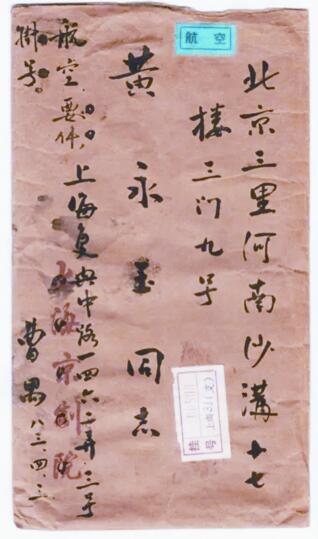 航空
北京三里河南沙溝十七
楼三门九号
黄永玉同志
航空.要件.
掛号.
上海复兴中路一四六二弄三号
上海京剧院
曹禺 八三.四.三
挂号